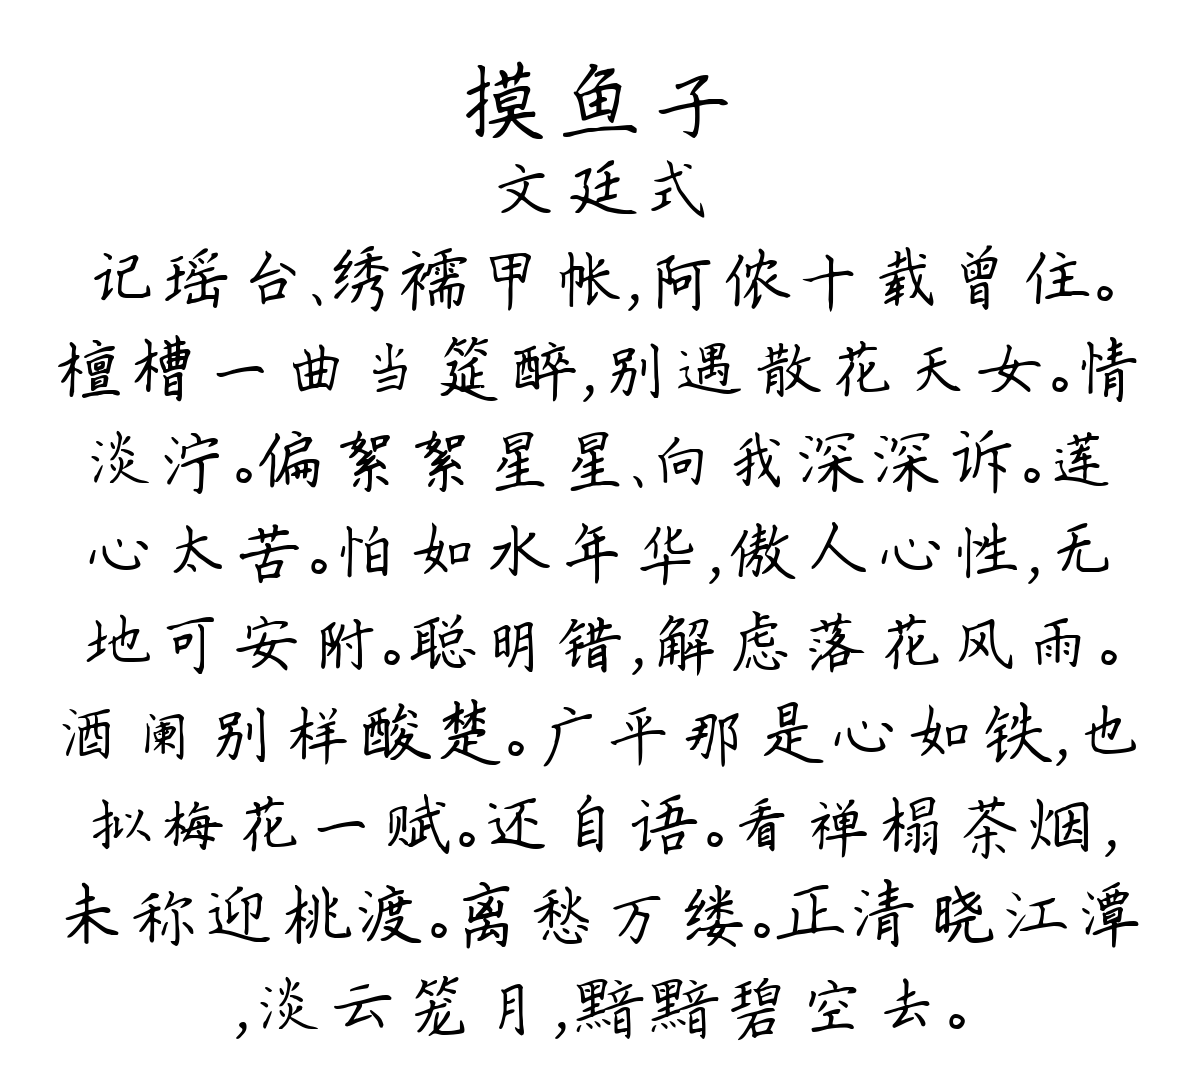 摸鱼子
文廷式
记瑶台、绣襦甲帐,阿侬十载曾住。
檀槽一曲当筵醉,别遇散花天女。情
淡泞。偏絮絮星星、向我深深诉。莲
心太苦。怕如水年华,傲人心性,无
地可安附。聪明错,解虑落花风雨。
酒阑别样酸楚。广平那是心如铁,也
拟梅花一赋。还自语。看禅榻茶烟,
未称迎桃渡。离愁万缕。正清晓江潭
,淡云笼月,黯黯碧空去。